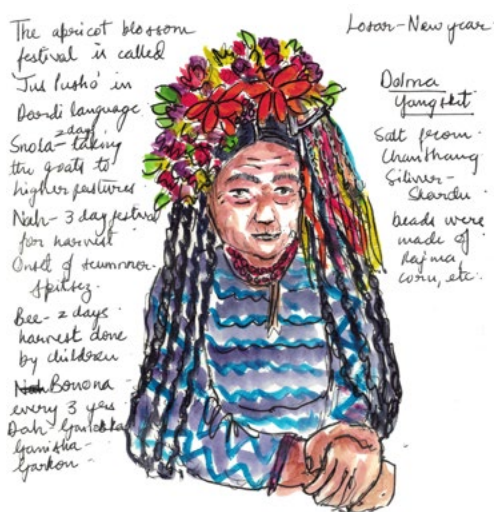 The apricot blossom
festival is called
'Jus Pusho' in
Dardi language
2 day
Snola - taking
the goats to
higher pastures
Nah - 3 day festival
for harvest
Onset of summer -
Bee - 2 days
harvest done
by children
Bonona -
every 3 yrs
Dah
Ganisha -
Garkon -
Losar - New year
Dolma
Yangskit
Salt from -
Chanthang
Silver -
Skardu
beads were
made of
Rajma
corn, etc.